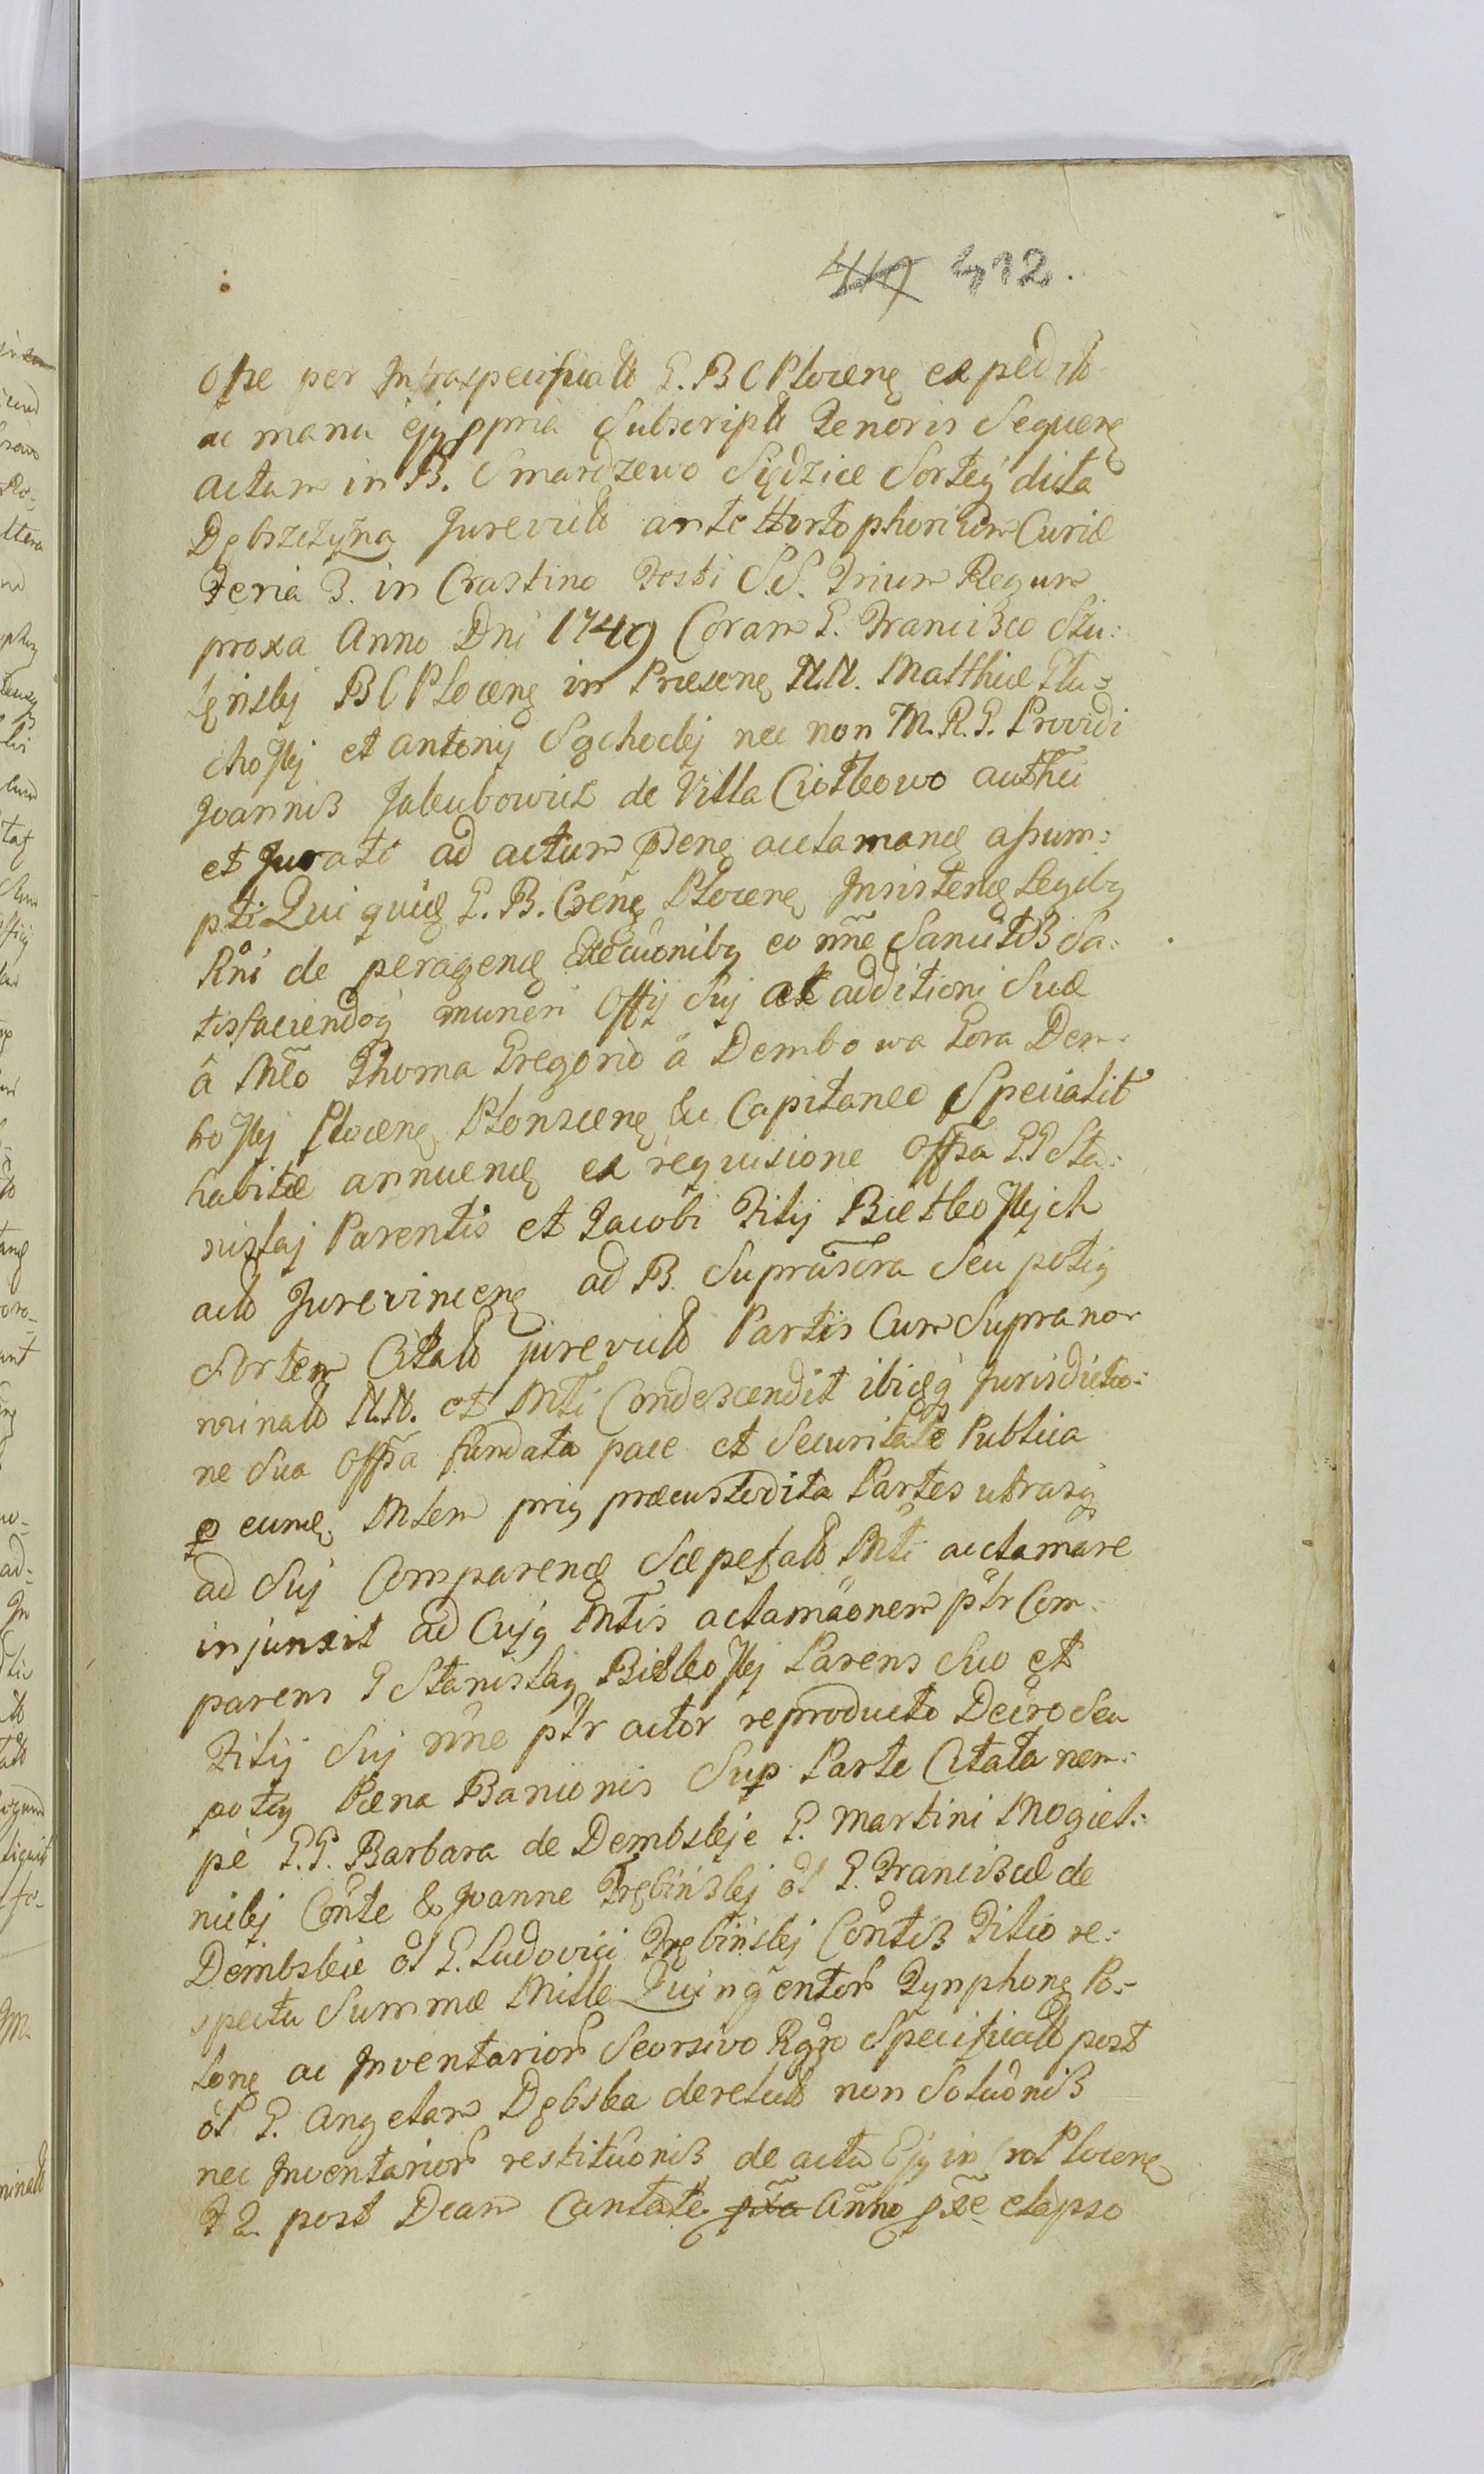 447 412.
offe per Infraspecificatt G. B C Plocenę expeditt
ac manu ejg ppria Subscriptt Tenoris Sequenę
Actum in B. Smardzewo Sędzice Sorteq dicta
Dębszczyzna Jurevictt ante Hortophorium Curiæ
Feria 3. in Crastino Festi S.S. Trium Regum
proxa Anno Dni 1749 Coram G. Francisco Szu:
leńskj B C Plocenę in Præsenę N.N. Matthiæ Głu=
choskj et Antonij Sąchockj nec non M.R.G. Providi
Joannis Jakubowicz de Villa Ciotkowo authci
et Jurati ad actum psenę acclamanę assum:
pti Qui quidę G. B. Csenę Plocenę Insistendę Legibg
Rni de peragendę Execuonibg eo nne Sancitis Sa:
tisfaciendoq muneri Offij Suj ac additioni Suæ
â Mlo Thoma Gregorio â Dembowa Gora Dem:
boskj Plocenę Plonscenę &c Capitaneo Specialit
habitæ annuendę ex requisione Offsa G.G Sta:
nislaj Parentis et Jacobi Filij Bielkoskjch
actt Jurevincenę ad B. Suprascra Seu potig
Sortem Citatt jurevictt Partis Cum Supranor
minatt N.N. et Mti Condescendit ibidęq Jurisdictio:
ne Sua Offsa fundata pace et Securitate Publica
p eundę Mlem prig præcustodita Partes utrasq
ad Suj Comparendę Sæpefatt Mti acclamare
injunxit ad Cujg Mtis aclamaonem ptr Com:
parens G Stanislag Bielkoskj Parens Suo et
Filij Suj nne ptr actor reproducto Decro Seu
potig Pœna Banionis Sup Parte Citata nem:
pè G.G. Barbara de Dembskje G. Martini Mogiel:
nickj Conte & Joanne Trębińskj ol G. Francisce de
Dembskie ol G. Ludovici Trębińskj Contis Filio re:
spectu Summæ Mille Quingentor Tynphonę Po:
lonę ac Inventarior Seorsivo Rgro Specificatt post
ol G. Angelam Dębska derelictt non Soluonis
nec Inventarior restituonis de acta Ejg in Cro Plocenę
F 2 post Dcam Cantate pxa Anno pxe elapso